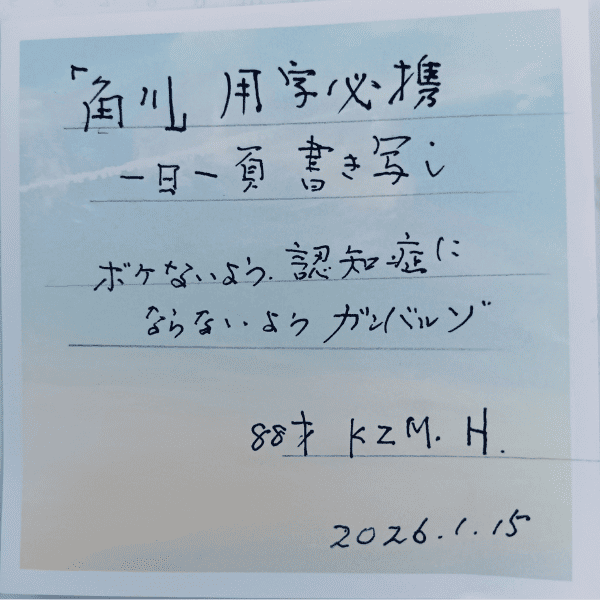 「角川」用字必携
一日一頁 書き写し
ボケないよう.認知症に
ならないよう ガンバルゾ
88才 KZM. H.
2026.1.15